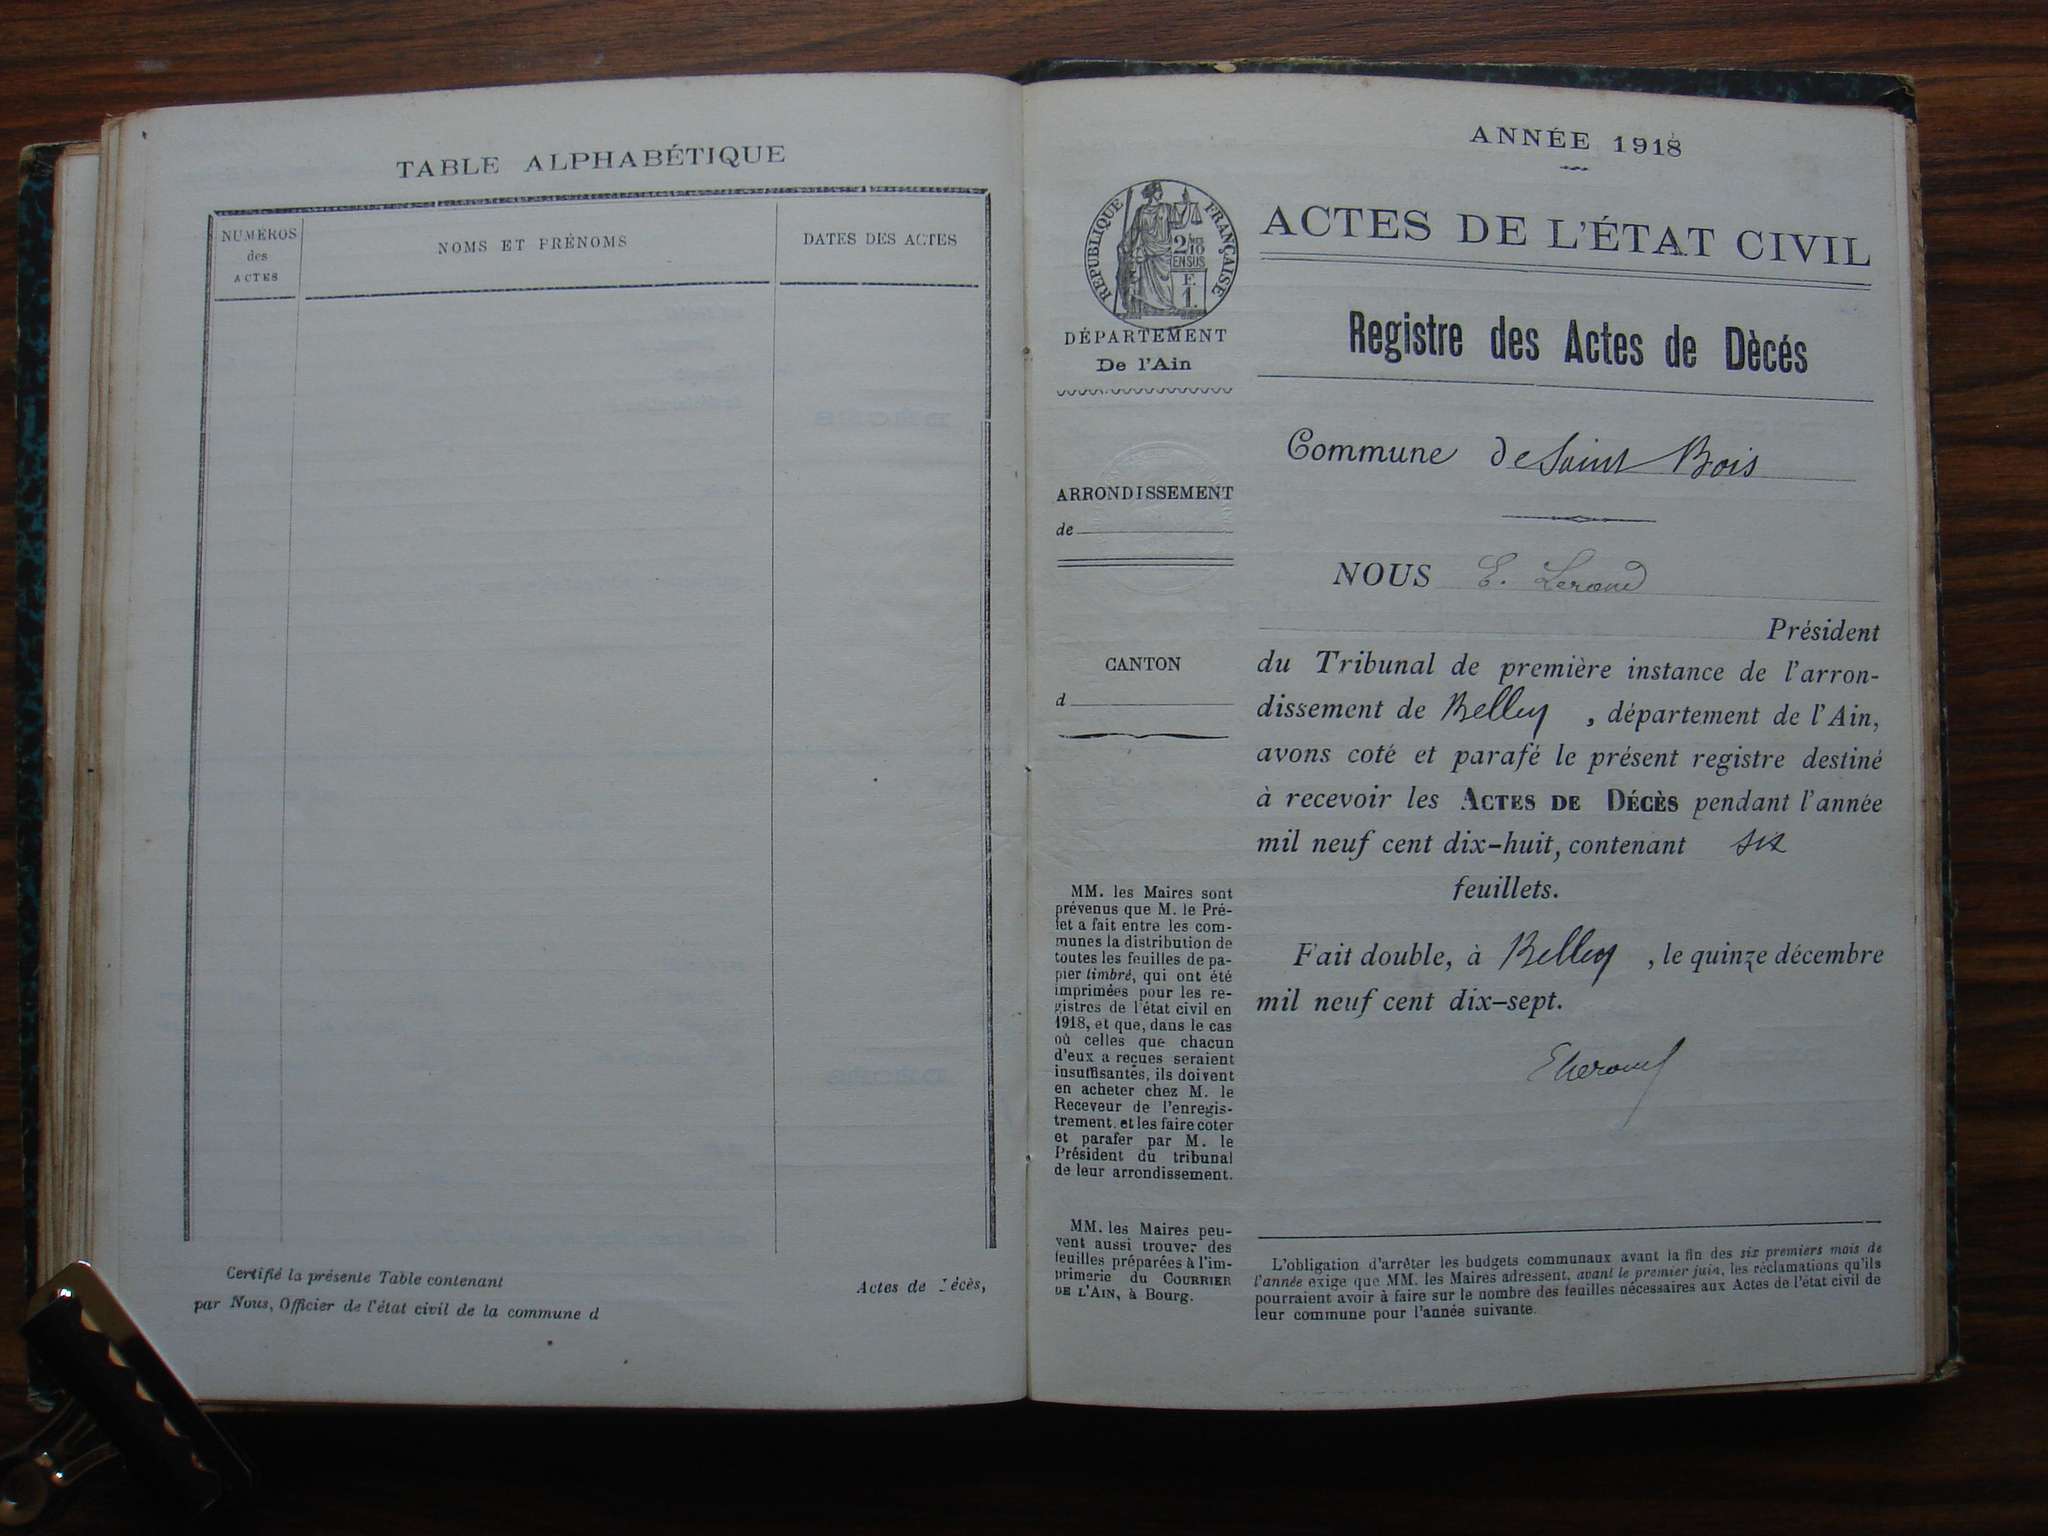 TABLE ALPHABÉTIQUE
NUMÉROS
des
ACTES
NOMS ET PRÉNOMS
DATES DES ACTES
Certifié la présente Table contenant Actes de Décès,
par Nous, Officier de l'état civil de la commune d
ANNÉE 1918
RÉPUBLIQUE FRANÇAISE
2/10
EN SUS
F.
1.
DÉPARTEMENT
De l'Ain
ARRONDISSEMENT
de
CANTON
d
MM. les Maires sont
prévenus que M. le Pré-
fet a fait entre les com-
munes la distribution de
toutes les feuilles de pa-
pier timbré, qui ont été
imprimées pour les re-
gistres de l'état civil en
1918, et que, dans le cas
où celles que chacun
d'eux a reçues seraient
insuffisantes, ils doivent
en acheter chez M. le
Receveur de l'enregis-
trement, et les faire coter
et parafer par M. le
Président du tribunal
de leur arrondissement.
MM. les Maires peu-
vent aussi trouver des
feuilles préparées à l'im-
primerie du COURRIER
DE L'AIN, à Bourg.
ACTES DE L'ÉTAT CIVIL
Registre des Actes de Dècés
Commune de Saint Bois
NOUS E.
Président
du Tribunal de première instance de l'arron-
dissement de Belley , département de l'Ain,
avons coté et parafé le présent registre destiné
à recevoir les ACTES DE DÉCÈS pendant l'année
mil neuf cent dix-huit, contenant six
feuillets.
Fait double, à Belley , le quinze décembre
mil neuf cent dix-sept.
L'obligation d'arrêter les budgets communaux avant la fin des six premiers mois de
l'année exige que MM. les Maires adressent, avant le premier juin, les réclamations qu'ils
pourraient avoir à faire sur le nombre des feuilles nécessaires aux Actes de l'état civil de
leur commune pour l'année suivante.